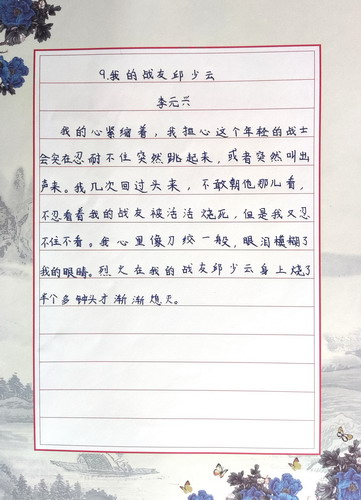 9.我的战友邱少云
李元兴
我的心紧缩着，我担心这个年轻的战士
会突在忍耐不住突然跳起来，或者突然叫出
声来。我几次回过头来，不敢朝他那儿看，
不忍看着我的战友被活活烧死，但是我又忍
不住不看。我心里像刀绞一般，眼泪模糊了
我的眼睛。烈火在我的战友邱少云身上烧了
半个多钟头才渐渐熄灭。